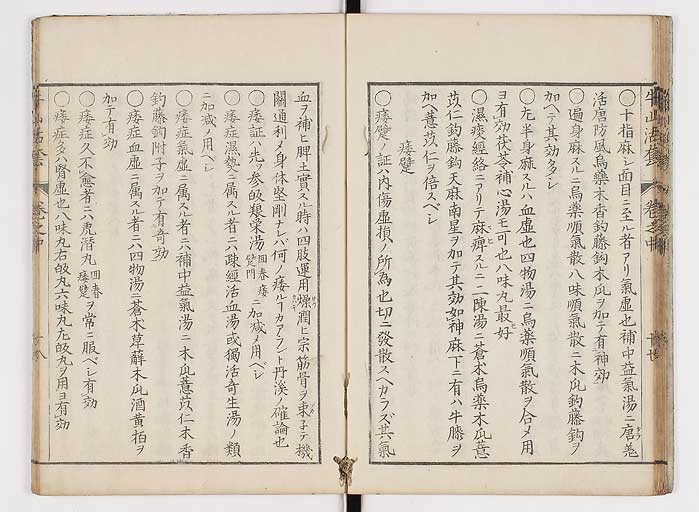 ○十指麻シ面目ニ至ル者アリ氣虛也補中益氣湯ニ唐羗
活唐防風烏藥木香鈎藤鈎木瓜ヲ加テ有神効
○遍身麻スルニ烏藥順氣散八味順氣散ニ木瓜鈎藤鈎ヲ
加ヘテ其効多シ
○左半身麻スルハ血虛也四物湯ニ烏藥順氣散ヲ合メ用
ヨ有効茯苓補心湯モ可也八味丸最好
○濕痰經絡ニアリテ麻痺スルニ二陳湯ニ蒼朮烏藥木瓜薏
苡仁鈎藤鈎天麻南星ヲ加テ其効如神麻下ニ有ハ牛膝ヲ
加ヘ薏苡仁ヲ倍スベシ
痿躄
○痿躄ノ証ハ内傷虛損ノ所為也切ニ發散スヘカラズ其氣
血ヲ補ヒ脾土實スル時ハ四肢運用燥潤ヒ宗筋骨ヲ束子テ機
關通利メ身体堅剛ナレバ何ノ痿ルヿカアラント丹溪ノ確論也
○痿証ハ先ヲ参芪湯 回春痿躄門 ニ加减メ用ベシ
○痿症濕熱ニ属スル者ニハ疎經活血湯或獨活寄生湯ノ類
ニ加减メ用ベシ
○痿症氣虛ニ属スル者ニハ補中益氣湯ニ木瓜薏苡仁木香
鈎藤鈎附子ヲ加テ有竒効
○痿症血虛ニ属スル者ニハ四物湯ニ蒼朮草薢木瓜酒黄栢ヲ
加テ有効
○痿症久不愈者ニハ虎潛丸 回春痿躄 ヲ常ニ服ベシ有効
○痿症多ハ腎虛也八味丸右皈丸六味丸左皈丸ヲ用ヨ有効